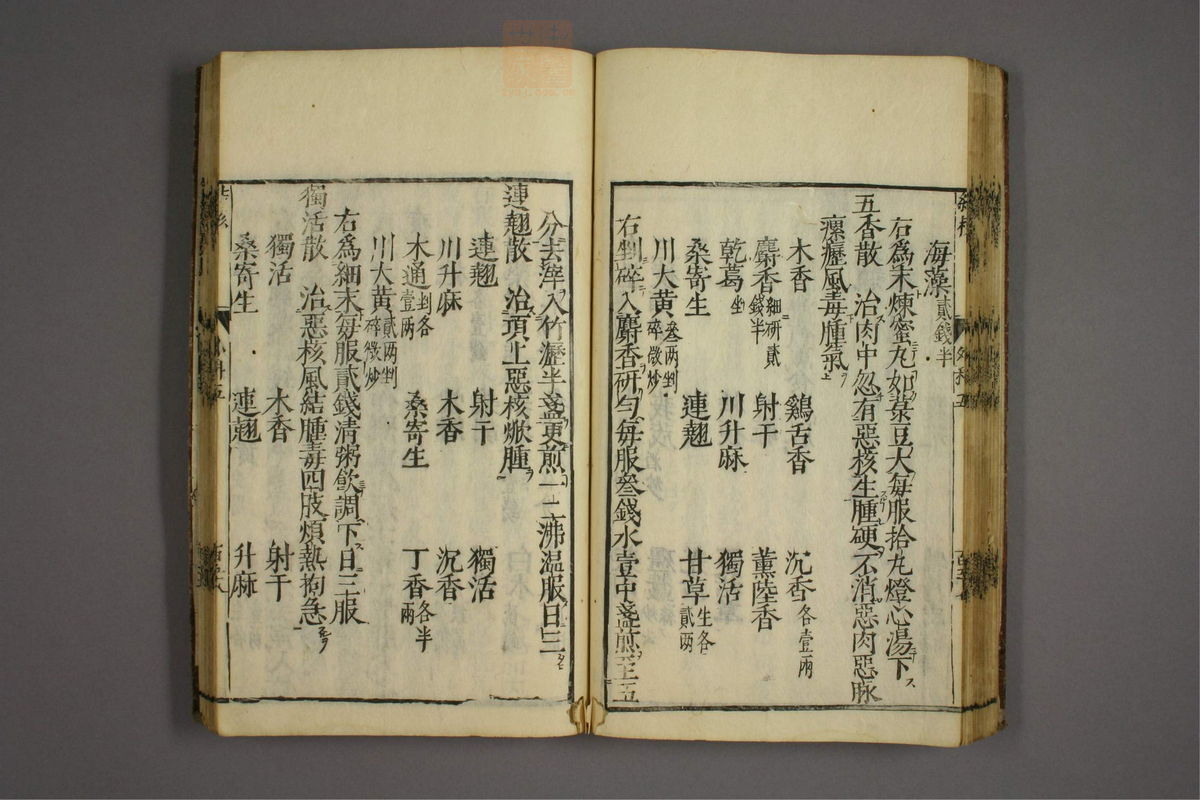 海藻貳錢半
右為末煉蜜丸如菉豆大每服拾丸燈心湯下
五香散　治肉中忽有惡核生腫硬不消惡肉惡脉
瘰癧風毒腫氣
木香　鷄舌香　沉香各壹兩
麝香細研貳錢半　射干　薰陸香
乾葛坐　川升麻　獨活
桑寄生　連翹　甘草生各貳两
川大黄叁两剉碎微炒
右剉碎入麝香研勻每服叁錢水壹中盞煎至五
分去滓入竹瀝半盞更煎一二沸温服日三
連翹散　治項上惡核焮腫
連翹　射干　獨活
川升麻　木香　沉香
木通剉各壹两　桑寄生　丁香各半兩
川大黄貳两剉碎微炒
右為細末每服貳錢清粥飲調下日三服
獨活散　治惡核風結腫毒四肢煩熱拘急
獨活　木香　射干
桑寄生　連翹　升麻